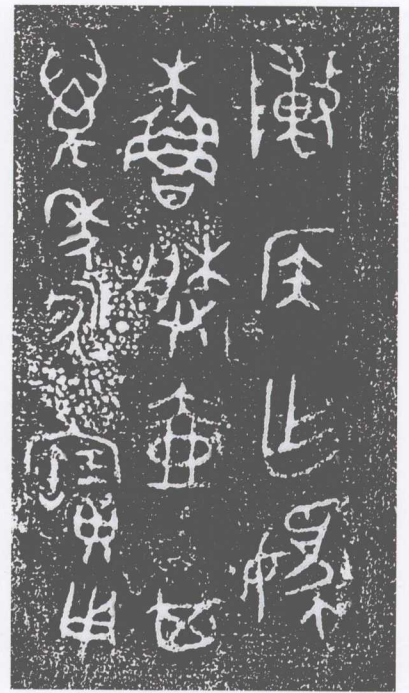 陳侯作媯
櫓媵壺其
萬年永寶用